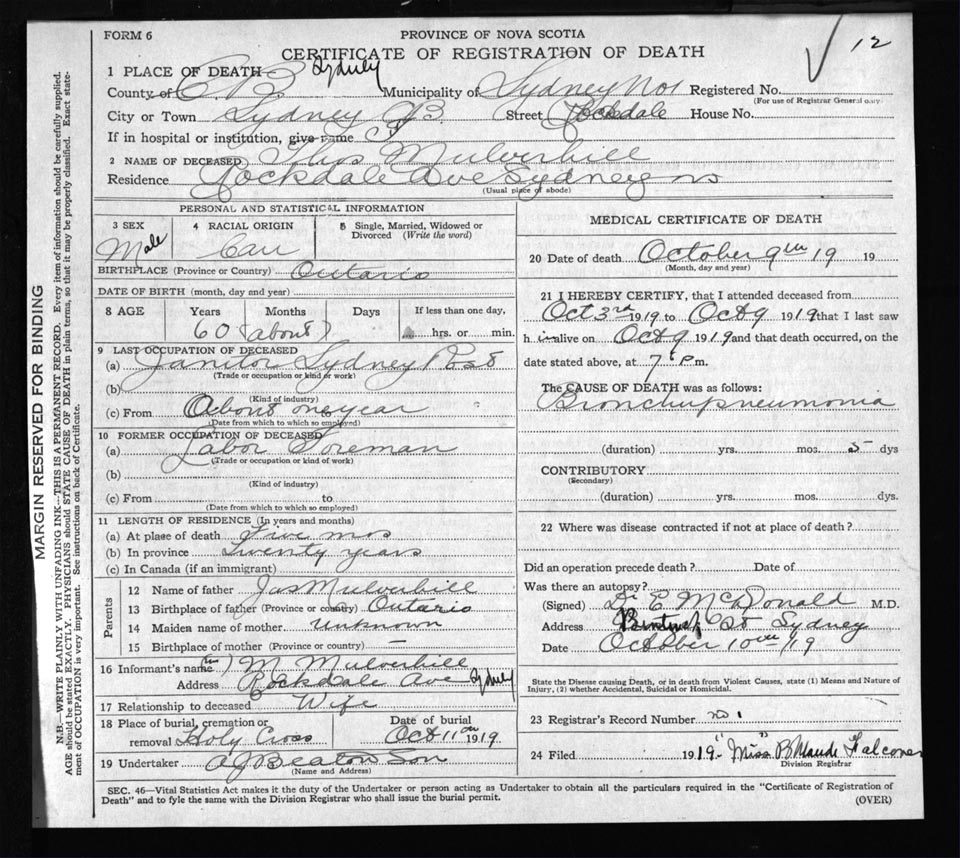 FORM 6
PROVINCE OF NOVA SCOTIA
CERTIFICATE OF REGISTRATION OF DEATH
12
1 PLACE OF DEATH Sydney
County of C.B. Municipality of Sydney No 1 Registered No.
(For use of Registrar General only)
City or Town Sydney CB Street Rockdale House No.
If in hospital or institution, give name
2 NAME OF DECEASED Thos Mulverhill
Residence Rockdale Ave Sydney NS
(Usual place of abode)
PERSONAL AND STATISTICAL INFORMATION
3 SEX 4 RACIAL ORIGIN 5 Single, Married, Widowed or Divorced (Write the word)
Male Can
BIRTHPLACE (Province or Country) Ontario
DATE OF BIRTH (month, day and year)
8 AGE Years Months Days If less than one day,
60 (about) hrs. or min.
9 LAST OCCUPATION OF DECEASED
(a) Janitor Sydney Post
(Trade or occupation or kind or work)
(b)
(Kind of industry)
(c) From About one year
(Date from which to which so employed)
10 FORMER OCCUPATION OF DECEASED
(a) Labor Foreman
(Trade or occupation or kind of work)
(b)
(Kind of industry)
(c) From to
(Date from which to which so employed)
11 LENGTH OF RESIDENCE (In years and months)
(a) At place of death Five mos
(b) In province Twenty years
(c) In Canada (if an immigrant)
Parents
12 Name of father Jas Mulverhill
13 Birthplace of father (Province or country) Ontario
14 Maiden name of mother Unknown
15 Birthplace of mother (Province or country) —
16 Informant's name M Mulverhill
Address Rockdale Ave Sydney
17 Relationship to deceased Wife
18 Place of burial, cremation or removal Holy Cross
Date of burial Oct 11th 1919
19 Undertaker A J Beaton Son
(Name and Address)
MEDICAL CERTIFICATE OF DEATH
20 Date of death October 9th 19 19
(Month, day and year)
21 I HEREBY CERTIFY, that I attended deceased from
Oct 3rd 1919 to Oct 9 1919 that I last saw
h im alive on Oct 9 1919 and that death occurred, on the
date stated above, at 7 P m.
The CAUSE OF DEATH was as follows:
Bronchopneumonia
(duration) yrs. mos. 5 dys
CONTRIBUTORY
(Secondary)
(duration) yrs. mos. dys.
22 Where was disease contracted if not at place of death?
Did an operation precede death? Date of
Was there an autopsy?
(Signed) Dr E McDonald M.D.
Address Bentinck St Sydney
Date October 10th 19
State the Disease causing Death, or in death from Violent Causes, state (1) Means and Nature of Injury, (2) whether Accidental, Suicidal or Homicidal.
23 Registrar's Record Number No 1
24 Filed 1919 Miss B Maude Falconer
Division Registrar
SEC. 46—Vital Statistics Act makes it the duty of the Undertaker or person acting as Undertaker to obtain all the particulars required in the "Certificate of Registration of
Death" and to fyle the same with the Division Registrar who shall issue the burial permit.
(OVER)
MARGIN RESERVED FOR BINDING
N.B.—WRITE PLAINLY WITH UNFADING INK—THIS IS A PERMANENT RECORD. Every item of information should be carefully supplied.
AGE should be stated EXACTLY. PHYSICIANS should STATE CAUSE OF DEATH in plain terms, so that it may be properly classified. Exact statement of OCCUPATION is very important. See instructions on back of Certificate.